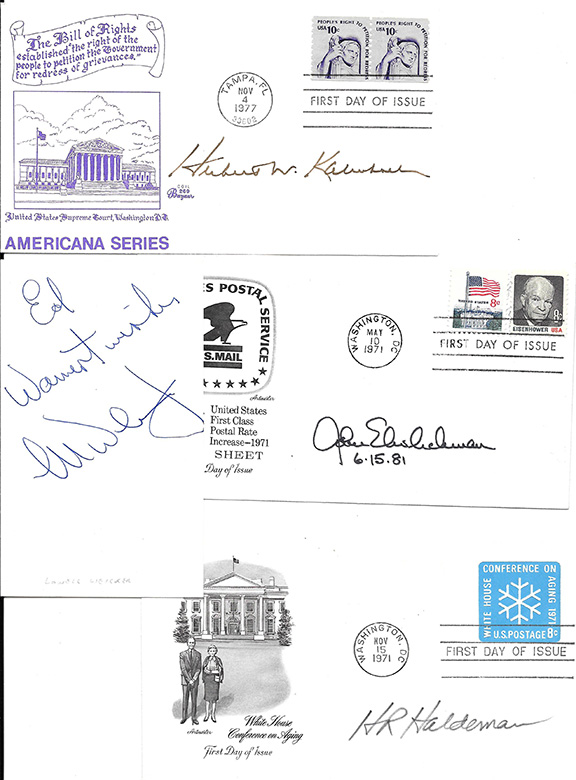 The Bill of Rights
established "the right of the
people to petition the Government
for redress of grievances."
PEOPLE'S RIGHT TO PETITION FOR REDRESS
USA 10c
PEOPLE'S RIGHT TO PETITION FOR REDRESS
USA 10c
TAMPA, FL
NOV
4
1977
FIRST DAY OF ISSUE
Herbert W. Kalmbach
269
Bazaar
United States Supreme Court, Washington D.C.
AMERICANA SERIES
Ed
Warmest wishes
LOWELL WEICKER
ES POSTAL SERVICE
S. MAIL
Artmaster
United States
First Class
Postal Rate
Increase–1971
SHEET
Day of Issue
WASHINGTON, DC
MAY
10
1971
8c
EISENHOWER USA
8c
FIRST DAY OF ISSUE
John Ehrlichman
6·15·81
Artmaster
White House
Conference on Aging
First Day of Issue
WASHINGTON, DC
NOV
15
1971
WHITE HOUSE CONFERENCE ON AGING 1971
U.S. POSTAGE 8c
FIRST DAY OF ISSUE
HR Haldeman